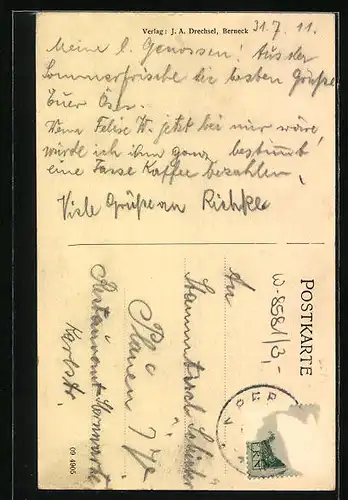 Verlag: J. A. Drechsel, Berneck
31.7.11.
Meine l. Genossen! Aus der
Sommerfrische die besten Grüße
Euer
Wenn Felix W. jetzt bei mir wäre,
würde ich ihm ganz bestimmt
eine Tasse Kaffee bezahlen!
Viele Grüße an
POSTKARTE
W-8581/3,-
An
Stammtisch
Plauen i/V.
Restaurant Sternwarte
09 4906